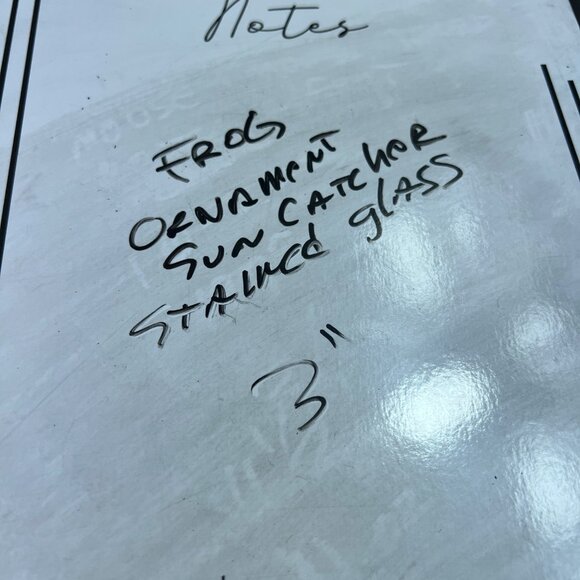 Notes
FROG
ORNAMENT
SUN CATCHER
STAINED glASS
3"